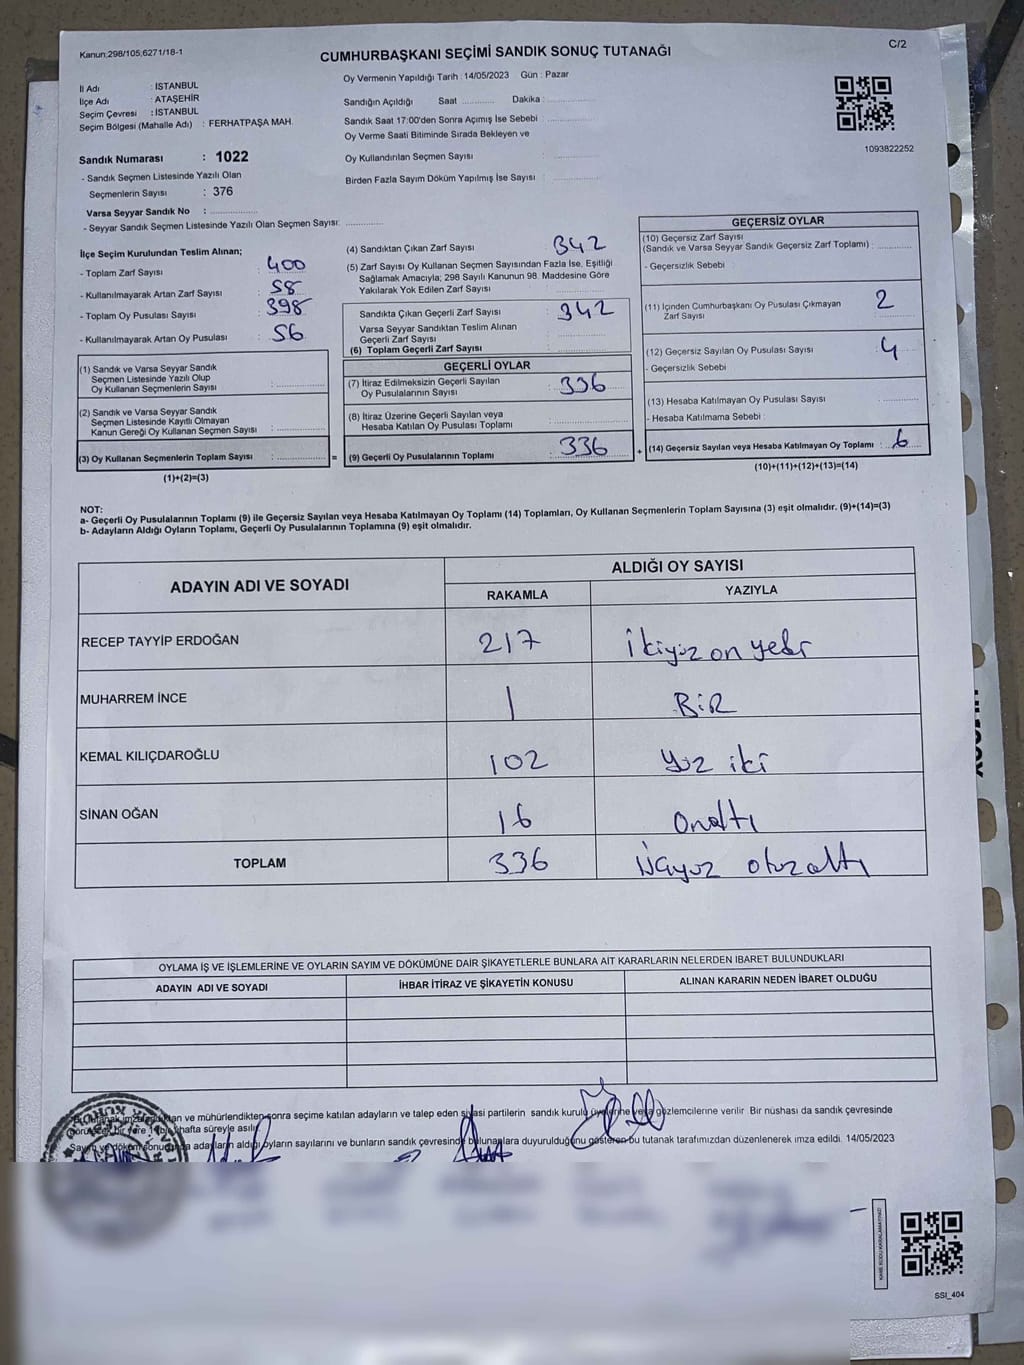 Kanun:298/105;6271/18-1
CUMHURBAŞKANI SEÇİMİ SANDIK SONUÇ TUTANAĞI
C/2
İl Adı : İSTANBUL
İlçe Adı : ATAŞEHİR
Seçim Çevresi : İSTANBUL
Seçim Bölgesi (Mahalle Adı) : FERHATPAŞA MAH.
Sandık Numarası : 1022
- Sandık Seçmen Listesinde Yazılı Olan
Seçmenlerin Sayısı : 376
Varsa Seyyar Sandık No :
- Seyyar Sandık Seçmen Listesinde Yazılı Olan Seçmen Sayısı:
Oy Vermenin Yapıldığı Tarih : 14/05/2023 Gün : Pazar
Sandığın Açıldığı Saat Dakika :
Sandık Saat 17:00'den Sonra Açımış İse Sebebi :
Oy Verme Saati Bitiminde Sırada Bekleyen ve
Oy Kullandırılan Seçmen Sayısı :
Birden Fazla Sayım Döküm Yapılmış İse Sayısı :
1093822252
İlçe Seçim Kurulundan Teslim Alınan;
- Toplam Zarf Sayısı : 400
- Kullanılmayarak Artan Zarf Sayısı : 58
- Toplam Oy Pusulası Sayısı : 398
- Kullanılmayarak Artan Oy Pusulası : 56
(1) Sandık ve Varsa Seyyar Sandık
Seçmen Listesinde Yazılı Olup
Oy Kullanan Seçmenlerin Sayısı :
(2) Sandık ve Varsa Seyyar Sandık
Seçmen Listesinde Kayıtlı Olmayan
Kanun Gereği Oy Kullanan Seçmen Sayısı :
(3) Oy Kullanan Seçmenlerin Toplam Sayısı :
=
(1)+(2)=(3)
(4) Sandıktan Çıkan Zarf Sayısı : 342
(5) Zarf Sayısı Oy Kullanan Seçmen Sayısından Fazla İse, Eşitliği
Sağlamak Amacıyla; 298 Sayılı Kanunun 98. Maddesine Göre
Yakılarak Yok Edilen Zarf Sayısı :
Sandıkta Çıkan Geçerli Zarf Sayısı : 342
Varsa Seyyar Sandıktan Teslim Alınan
Geçerli Zarf Sayısı :
(6) Toplam Geçerli Zarf Sayısı :
GEÇERLİ OYLAR
(7) İtiraz Edilmeksizin Geçerli Sayılan
Oy Pusulalarının Sayısı : 336
(8) İtiraz Üzerine Geçerli Sayılan veya
Hesaba Katılan Oy Pusulası Toplamı :
(9) Geçerli Oy Pusulalarının Toplamı : 336
+
GEÇERSİZ OYLAR
(10) Geçersiz Zarf Sayısı
(Sandık ve Varsa Seyyar Sandık Geçersiz Zarf Toplamı) :
- Geçersizlik Sebebi :
(11) İçinden Cumhurbaşkanı Oy Pusulası Çıkmayan
Zarf Sayısı : 2
(12) Geçersiz Sayılan Oy Pusulası Sayısı : 4
- Geçersizlik Sebebi :
(13) Hesaba Katılmayan Oy Pusulası Sayısı :
- Hesaba Katılmama Sebebi :
(14) Geçersiz Sayılan veya Hesaba Katılmayan Oy Toplamı : 6
(10)+(11)+(12)+(13)=(14)
NOT:
a- Geçerli Oy Pusulalarının Toplamı (9) ile Geçersiz Sayılan veya Hesaba Katılmayan Oy Toplamı (14) Toplamları, Oy Kullanan Seçmenlerin Toplam Sayısına (3) eşit olmalıdır. (9)+(14)=(3)
b- Adayların Aldığı Oyların Toplamı, Geçerli Oy Pusulalarının Toplamına (9) eşit olmalıdır.
ADAYIN ADI VE SOYADI
ALDIĞI OY SAYISI
RAKAMLA
YAZIYLA
RECEP TAYYİP ERDOĞAN 217 ikiyüz on yedi
MUHARREM İNCE 1 BİR
KEMAL KILIÇDAROĞLU 102 Yüz iki
SİNAN OĞAN 16 Onaltı
TOPLAM 336 üçyüz otuz altı
OYLAMA İŞ VE İŞLEMLERİNE VE OYLARIN SAYIM VE DÖKÜMÜNE DAİR ŞİKAYETLERLE BUNLARA AİT KARARLARIN NELERDEN İBARET BULUNDUKLARI
ADAYIN ADI VE SOYADI
İHBAR İTİRAZ VE ŞİKAYETİN KONUSU
ALINAN KARARIN NEDEN İBARET OLDUĞU
ve mühürlendikten sonra seçime katılan adayların ve talep eden siyasi partilerin sandık kurulu üyelerine veya gözlemcilerine verilir Bir nüshası da sandık çevresinde
hafta süreyle asılır
adayların aldığı oyların sayılarını ve bunların sandık çevresinde bulunanlara duyurulduğunu gösteren bu tutanak tarafımızdan düzenlenerek imza edildi. 14/05/2023
KARE KODU KARALAMAYINIZ!
SSİ_404